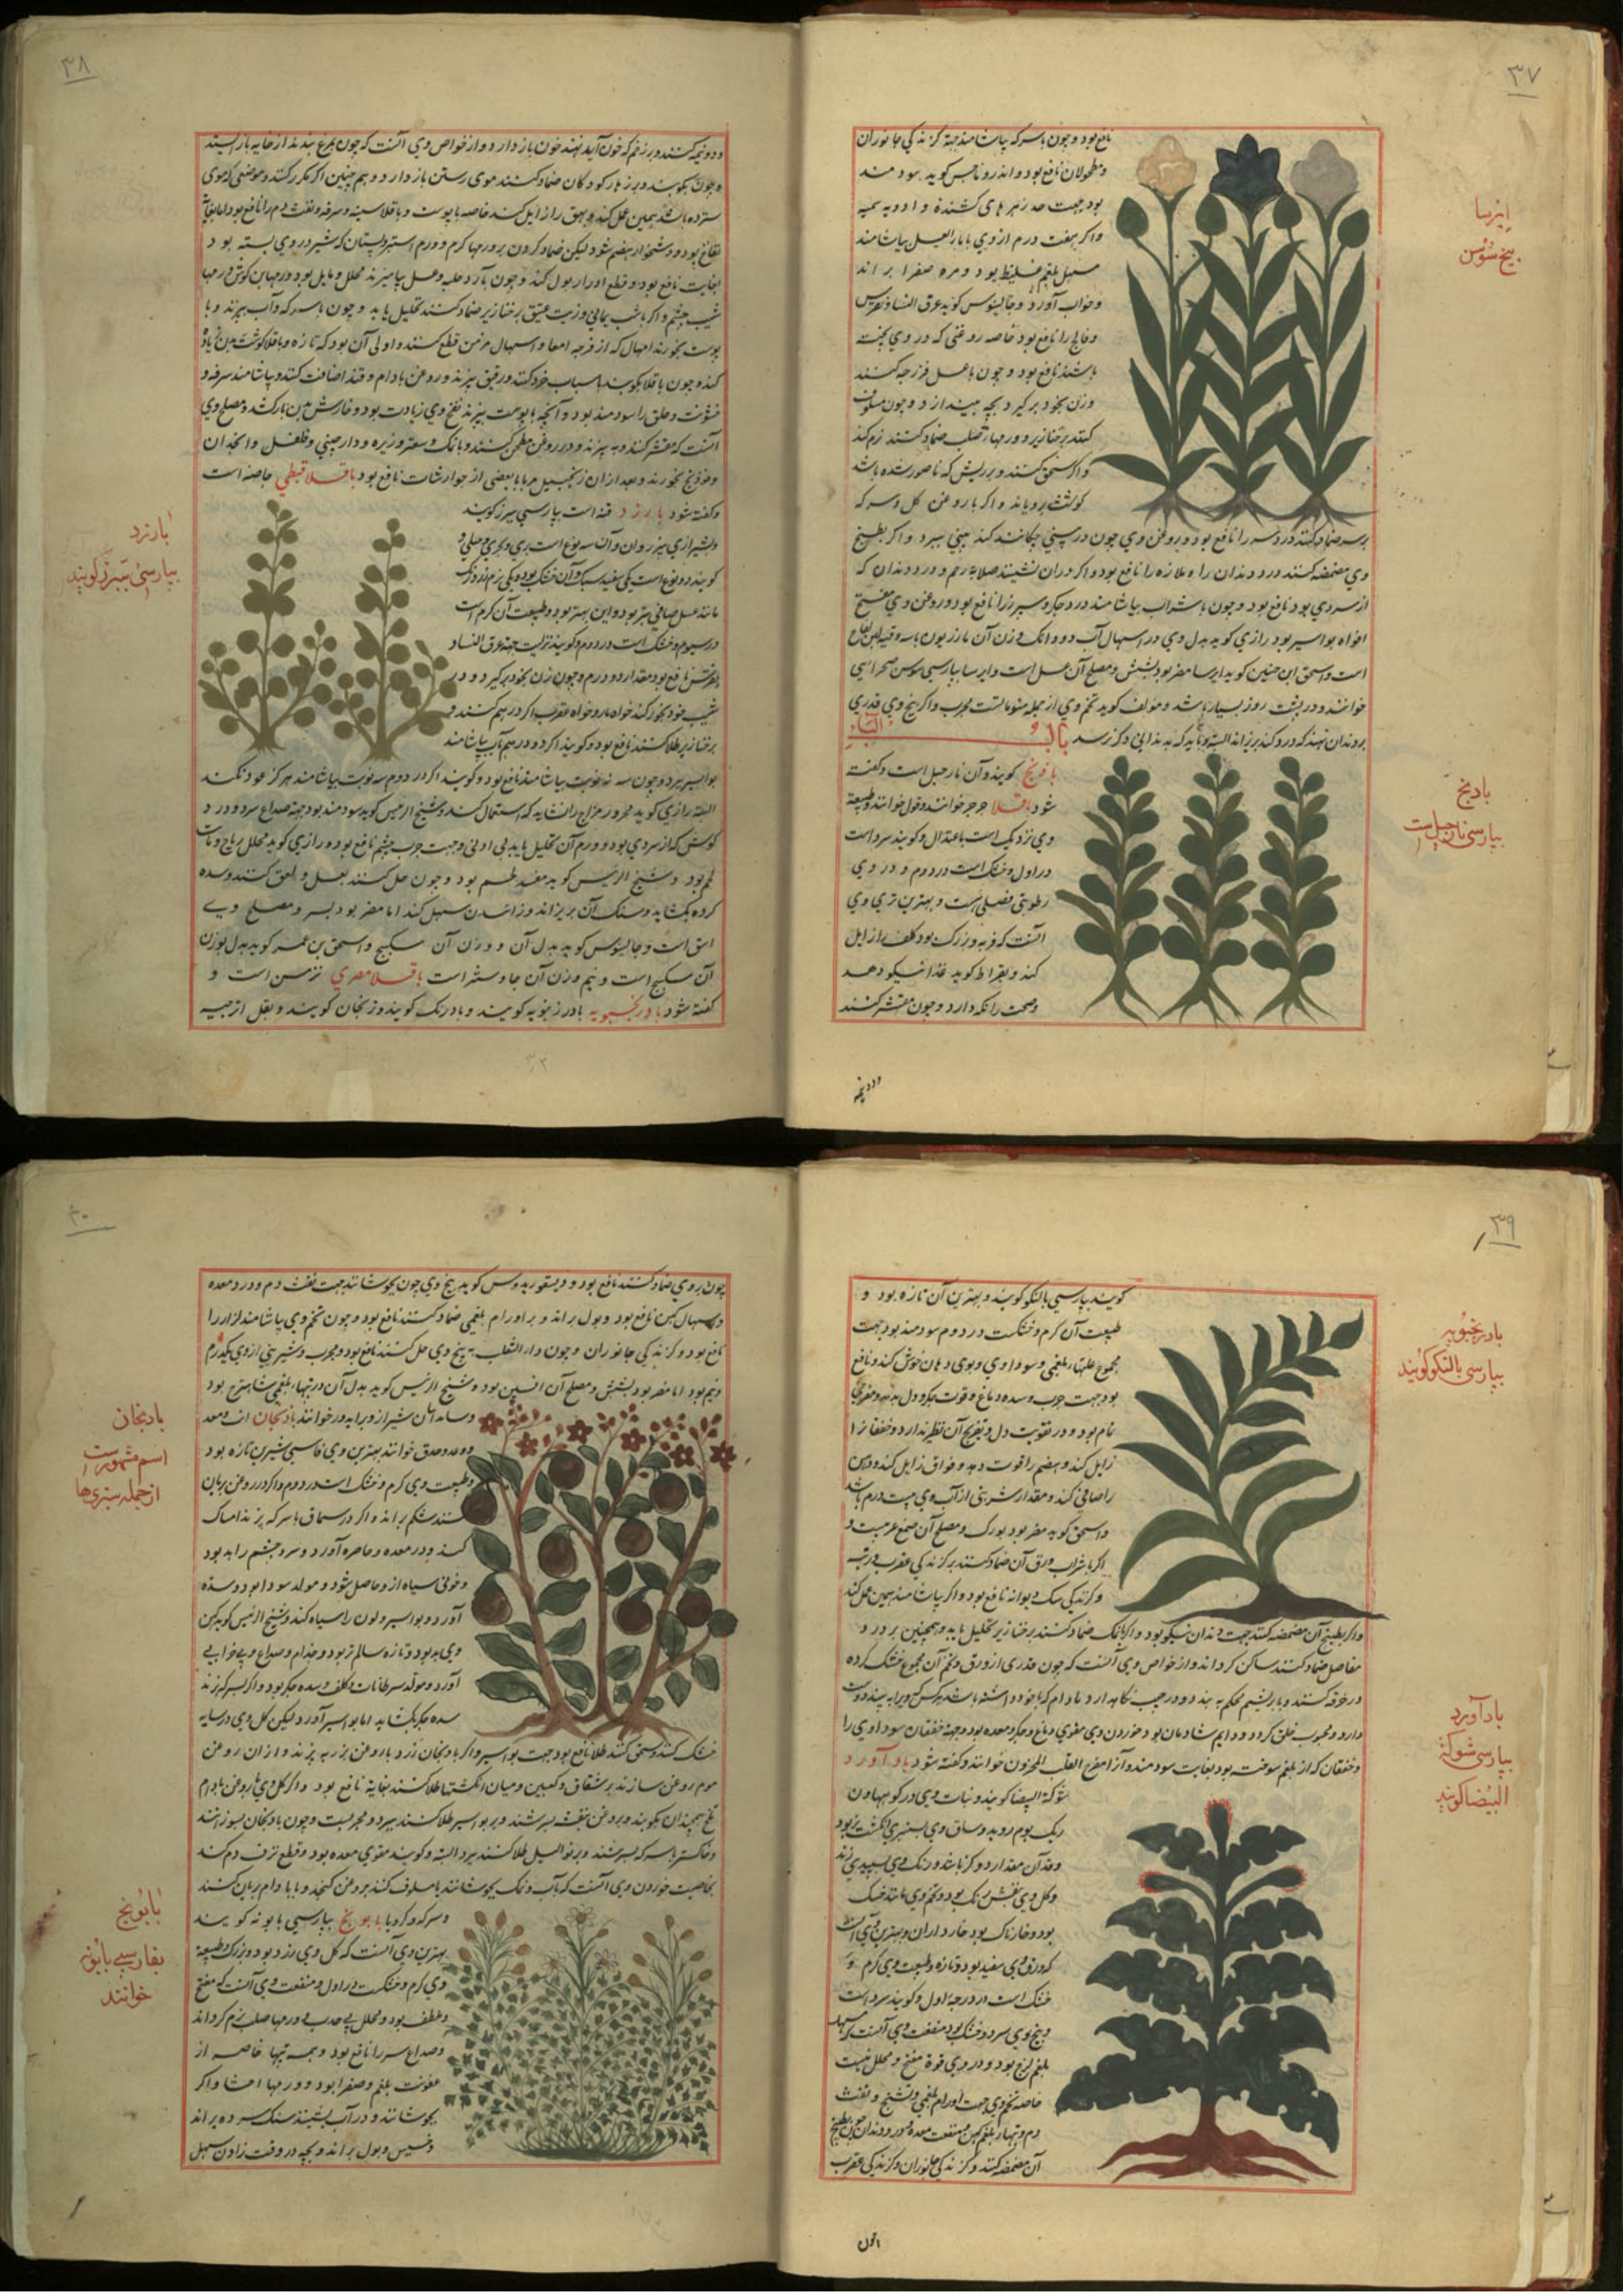 ٣٧
نافع بود و چون با سرکه بیاشامند جهة کزندکی جانوران
و مطحولان نافع بود و اندروماخس کوید سودمند
بود جهت همه زهرهای کشنده و ادویه سمیه
واکر هفت درم از وی با ماءالعسل بیاشامند
مسهل بلغم غلیظ بود و مره صفرا براند
و خواب آورد و جالینوس کوید عرق النسا و نقرس
و فالج را نافع بود خاصه روغنی که در وی پخته
باشند نافع بود و چون با عسل فرزجه کنند
و زن بخود بر کیرد بچه بیندازد و چون مسلوق
کنند بر خنازیر و ورمهاء صلب ضماد کنند نرم کند
واکر سحق کنند و بر ریش که ناصور شده باشد
کوشت برویاند و اکر با روغن کل و سرکه
بر سر ضماد کنند درد سر را نافع بود و روغن وی چون در بینی چکانند کند بینی ببرد و اکر بطبیخ
وی مضمضه کنند درد دندان را و ملازه را نافع بود و اکر در آن نشینند صلابه رحم و درد دندان که
از سردی بود نافع بود و چون با شراب بیاشامند درد جکر و سپرز را نافع بود و روغن وی مفتح
افواه بواسیر بود رازی کوید بدل وی در اسهال آب دو دانک وزن آن مازریون با سه وقیه لبن لقاح
است و اسحق ابن حنین کوید ایرسا مضر بود بشش و مصلح آن عسل است و ایرسا بپارسی سوسن صحرایی
خوانند و در پشت روز بسیار باشد و مؤلف کوید تخم وی از جمله منومات مجرب و اکر بیخ وی قدری
بر دندان نهند که درد کند بریزاند البته و باید که بدندانی دکر نرسد باب الباء
بادنج کویند و آن نارجیل است و کفته
شود باقلا جرجر خوانند و فول خوانند و طبیعة
وی نزدیک است باعتدال و کویند سرد است
در اول و خشک است در دوم و در وی
رطوبتی فضلی هست و بهترین تری وی
آنست که فربه و بزرک بود کلف زایل
کند و بقراط کوید غذا نیکو دهد
و صحت را نکه دارد و چون مقشر کنند
ودونیمه
ایرسا
بیخ سوسن
بادنج
بپارسی نارجیل است
٣٨
ودونیمه کنند و بر زخم که خون آید نهند خون باز دارد و از خواص وی آنست که چون بمرغ بدهند از خایه باز ایستد
و چون بکوبند و بر زهار کودکان ضماد کنند موی رستن باز دارد و هم چنین اکر مکرر کنند و موضعی که موی
سترده باشد همین عمل کند و بهق را زایل کند خاصه با پوست و باقلا سینه و سرفه و نفث دم را نافع بود اما بغایت
نفاخ بود و دشخوار هضم شود لیکن ضماد کردن بر ورمها کرم و ورم انثیین و پستان که شیر در وی بسته بود
بغایت نافع بود و قطع ادرار بول کند و چون با آرد حلبه و عسل بیامیزند محلل دمامیل بود و ورمها بن کوش و ورمها
شیب چشم و اکر با شب یمانی و زیت عتیق بر خنازیر ضماد کنند تحلیل یابد و چون با سرکه و آب بپزند و با
پوست بخورند اسهال که از قرحه امعا و اسهال مزمن قطع کنند و اولی آن بود که تازه و باقلا کوشت بدن زیاده
کند و چون باقلا بکوبند یا بآسیاب خرد کنند و رقیق بپزند و روغن بادام و قند اضافت کنند و بیاشامند سرفه و
خشونت و حلق را سودمند بود و آنچه با پوست بپزند نفخ وی زیادت بود و خارش بدن بار کشد و مصلح وی
آنست که مقشر کنند و بپزند و در روغن مطجن کنند و با نمک و سعتر و زیره و دارچینی و فلفل و انجدان
و فودنج بخورند و بعد از آن زنجبیل مربا با بعضی از جوارشات نافع بود باقلا قبطی جامصه است
و کفته شود بارزد قنه است بپارسی بیرزد کویند
و بشیرازی بیزد و آن سه نوع است بری و بحری و جبلی و
کویند دو نوع است یکی سفید سبک و آن خشک بود و یکی نرم و زرد رنک
مانند عسل صافی تر بود و این بهتر بود و طبیعت آن کرم است
در سیوم و خشک است در دوم و کویند تریت جهة عرق النسا و
نقرس نافع بود مقدار دو درم و چون زن بخود بر کیرد و در
شیب خود بخور کند خواه مار و خواه عقرب اکر در هم کنند و
بر خنازیر طلا کنند نافع بود و کویند اکر دو درهم آب بیاشامند
بواسیر ببرد و چون سه نوبت بیاشامند نافع بود و کویند اکر در دوم سه نوبت بیاشامند هرکز عود نکند
البته رازی کوید محرور مزاج را نشاید که استعمال کند و شیخ الرئیس کوید سودمند بود جهة صداع سرد و درد
کوش که از سردی بود و ورم آن تحلیل یابد بی اذیتی و جهت جرب چشم نافع بود و رازی کوید محلل ریاح و منبت
لحم بود و شیخ الرئیس کوید مفسد لحم بود و چون حل کنند بعسل و لعق کنند سده
کرده بکشاید و سنک آن بریزاند و زائیدن سهل کند اما مضر بود بسر و مصلح وی
اشق است و جالینوس کوید بدل آن دو وزن آن سکبینج و اسحق بن عمر کوید بدل بوزن
آن سکبینج است و نیم وزن آن جاوشیر است باقلا مصری ترمس است و
کفته شود بادرنجبویه بادرنبویه کویند و بادرنک کویند و ترنجان کویند و بقل اترجیه
بارزد
بپارسی بیرزد کویند
٣٢
٣٩
کویند بپارسی بالنکو کویند و بهترین آن تازه بود و
طبیعت آن کرم و خشکست در دوم سودمند بود جهت
مجموع علتهاء بلغمی و سوداوی و بوی دهان خوش کند و نافع
بود جهت جرب و سده دماغ و قوت جکر و دل بدهد و مفرحی
تام بود و در تقویت دل و تفریح آن نظیر ندارد و خفقان را
زایل کند و هضم را قوت دهد و فواق زایل کند و ذهن
را صافی کند و مقدار شربتی از آب وی بیست درم باشد
و اسحق کوید مضر بود بورک و مصلح آن صمغ عربیست و
اکر با شراب ورق آن ضماد کنند بر کزندکی عقرب و رتیلا
و کزندکی سک دیوانه نافع بود و اکر بیاشامند همین عمل کند
و اکر بطبیخ آن مضمضه کنند جهت دندان نیکو بود و اکر با نمک ضماد کنند بر خنازیر تحلیل یابد و همچنین بر درد
مفاصل ضماد کنند ساکن کرداند و از خواص وی آنست که چون قدری از ورق و تخم آن مجموع خشک کرده
در خرقه کنند و بابریشم محکم ببندند و در جیب نکاه دارد مادام که با خود داشته باشد هر کس که ویرا ببیند دوست
دارد و محبوب خلق کردد و دایم شادمان بود و خوردن وی مقوی دماغ و جکر و معده بود و جهة خفقان سوداوی را
و خفقان که از بلغم سوخته بود بغایت سودمند و آنرا مفرح القلب المحزون خوانند و کفته شود بادآورد
شوکة البیضا کویند و نبات وی در کوهها و در
ریک بوم روید و ساق وی بسطبری انکشت نر بود
و قد آن مقدار دو کز باشد و رنک وی بسپیدی زند
و کل وی بنفش رنک بود و تخم وی مانند خسک
بود و خارناک بود خاردار است و بهترین وی آنست
که ورق وی سفید بود و تازه و طبیعت وی کرم و
خشک است در درجه اول و کویند سرد است
و بیخ وی سرد و خشک بود منفعت وی آنست که مسهل
بلغم لزج بود و در وی قوة مفتح و محلل نیست
خاصه تخم وی جهت اورام بلغمی و تشنج و نفث
دم و تبهاء بلغمی کهن و ضعف معده و درد دندان چون بطبیخ
آن مضمضه کنند و کزندکی جانوران و کزندکی عقرب
چون
بادرنجبویه
بپارسی بالنکو کویند
بادآورد
بپارسی شوکة
البیضا کویند
۴۰
چون بر وی ضماد کنند نافع بود و دیسقوریدوس کوید بیخ وی چون بجوشانند جهت نفث دم و درد معده
و اسهال کهن نافع بود و بول براند و بر اورام بلغمی ضماد کنند نافع بود و چون تخم وی بیاشامند کزاز را
نافع بود و کزندکی جانوران و چون داءالثعلب به بیخ وی حل کنند نافع بود و مجرب و شربتی از وی یکدرم
و نیم بود اما مضر بود بشش و مصلح آن افسنتین بود و شیخ الرئیس کوید بدل آن در تبهاء بلغمی شاهترج بود
بادنجان
و طبیعت وی کرم و خشک است در دوم و اکر در روغن بریان
کنند شکم براند و اکر در سماق یا سرکه پزند امساک
کند و در معده و خاصره آورد و سر و چشم را بد بود
و خونی سیاه از وی حاصل شود و مولد سودا بود و سده
آورد و بواسیر و لون را سیاه کند و شیخ الرئیس کوید کهن
وی بد بود و تازه سالم تر بود و جذام و صداع و بیخوابی
آورد و مولد سرطانات و کلف و سده جکر بود و اکر بسرکه پزند
سده جکر بکشاید اما بواسیر آورد لیکن کل وی در سایه
خشک کنند و سحق کنند طلا نافع بود جهت بواسیر و اکر بادنجان زرد با روغن بزر بپزند و از آن روغن
موم روغن سازند بر شقاق و کعبین و میان انکشتها طلا کنند بغایة نافع بود و اکر کل وی با روغن بادام
تلخ همچندان بکوبند و بروغن بنفشه بسرشند و بر بواسیر طلا کنند ببرد و مجربست و چون بادنجان بسوزانند
و خاکستر با سرکه بسرشند و بر ثوالیل طلا کنند ببرد البته و کویند مقوی معده بود و قطع نزف دم کند
بخاصیت خوردن وی آنست که بآب و نمک بجوشانند یا مسلوق کنند بروغن کنجد و یا بادام بریان کنند
و سرکه و کرویا بابونج بپارسی بابونه کویند
بهترین وی آنست که کل وی زرد بود و بزرک و طبیعة
وی کرم و خشکست در اول و منفعت وی آنست که مفتح
و ملطف بود و محلل بی جذب و ورمها صلب نرم کرداند
و صداع سر را نافع بود و همه تبها خاصه از
عفونت بلغم و صفرا بود و ورمها احشا و اکر
بجوشانند و در آب نشینند سنک کرده براند
و حیض و بول براند و بچه در وقت زادن سهل
بادنجان
اسم مشهورست
از جمله سبزیها
بابونج
بفارسی بابونه
خوانند